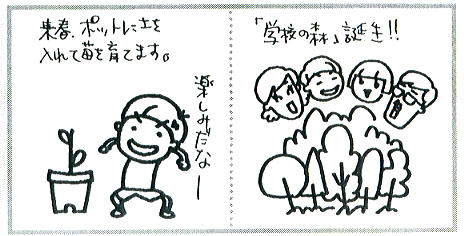 来春、ポットに土を
入れて苗を育てます。
楽しみだなー
「学校の森」誕生!!